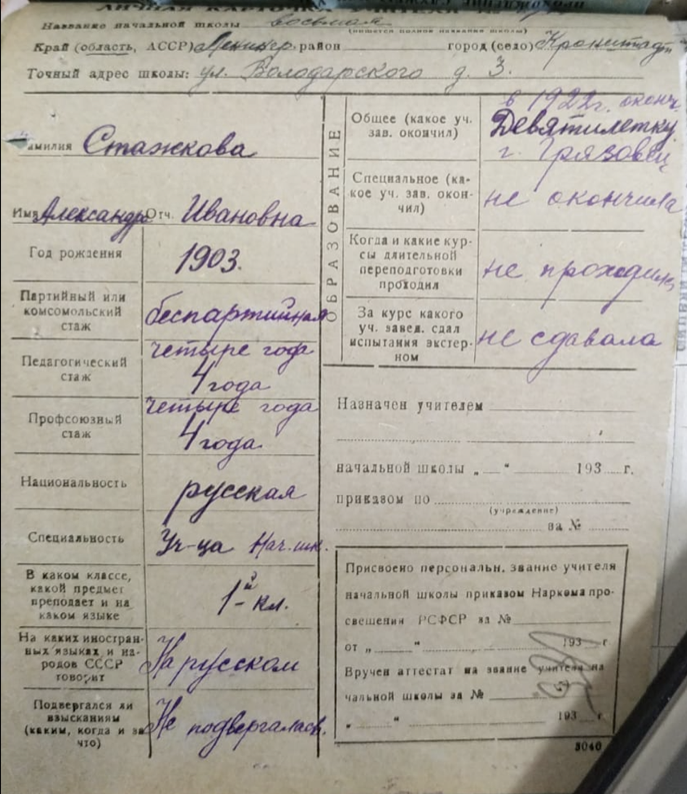 ЛИЧНАЯ КАРТОЧКА
Название начальной школы восьмая
(пишется полное название школы)
Край (область, АССР) Ленингр. район город (село) Кронштадт
Точный адрес школы: ул. Володарского д. 3.
Фамилия Стажкова
Имя Александр Отч. Ивановна
Год рождения 1903.
Партийный или
комсомольский
стаж беспартийная
Педагогический
стаж четыре года
4 года
Профсоюзный
стаж четыре года
4 года
Национальность русская
Специальность Уч-ца Нач. шк.
В каком классе,
какой предмет
преподает и на
каком языке 1-й кл.
На каких иностран-
ных языках и на-
родов СССР
говорит На русском
Подвергался ли
взысканиям
(каким, когда и за
что) Не подвергалась.
ОБРАЗОВАНИЕ
Общее (какое уч.
зав. окончил) в 1922 г. оконч.
Девятилетку
г. Грязовец
Специальное (ка-
кое уч. зав. окон-
чил) не окончила
Когда и какие кур-
сы длительной
переподготовки
проходил не проходила
За курс какого
уч. завед. сдал
испытания экстер-
ном не сдавала
Назначен учителем
начальной школы „ “ 193 г.
приказом по
(учреждение)
за №
Присвоено персональн. звание учителя
начальной школы приказом Наркома про-
свещения РСФСР за №
от „ “ 193 г.
Вручен аттестат на звание учителя на
чальной школы за №
„ “ 193 г.
3040